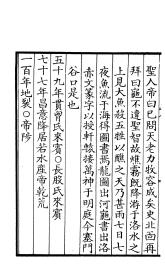 聖人帝曰已問天老力牧容成矣史北面再
拜曰龜不違聖智故燋霧既降游于洛水之
上見大魚殺五牲以醮之天乃甚雨七日七
夜魚流于海得圖書焉龍圖出河龜書出洛
赤文篆字以授軒轅接萬神于明庭今塞門
谷口是也
五十九年貫胷氏來賓○長股氏來賓
七十七年昌意降居若水産帝乾荒
一百年地裂○帝陟